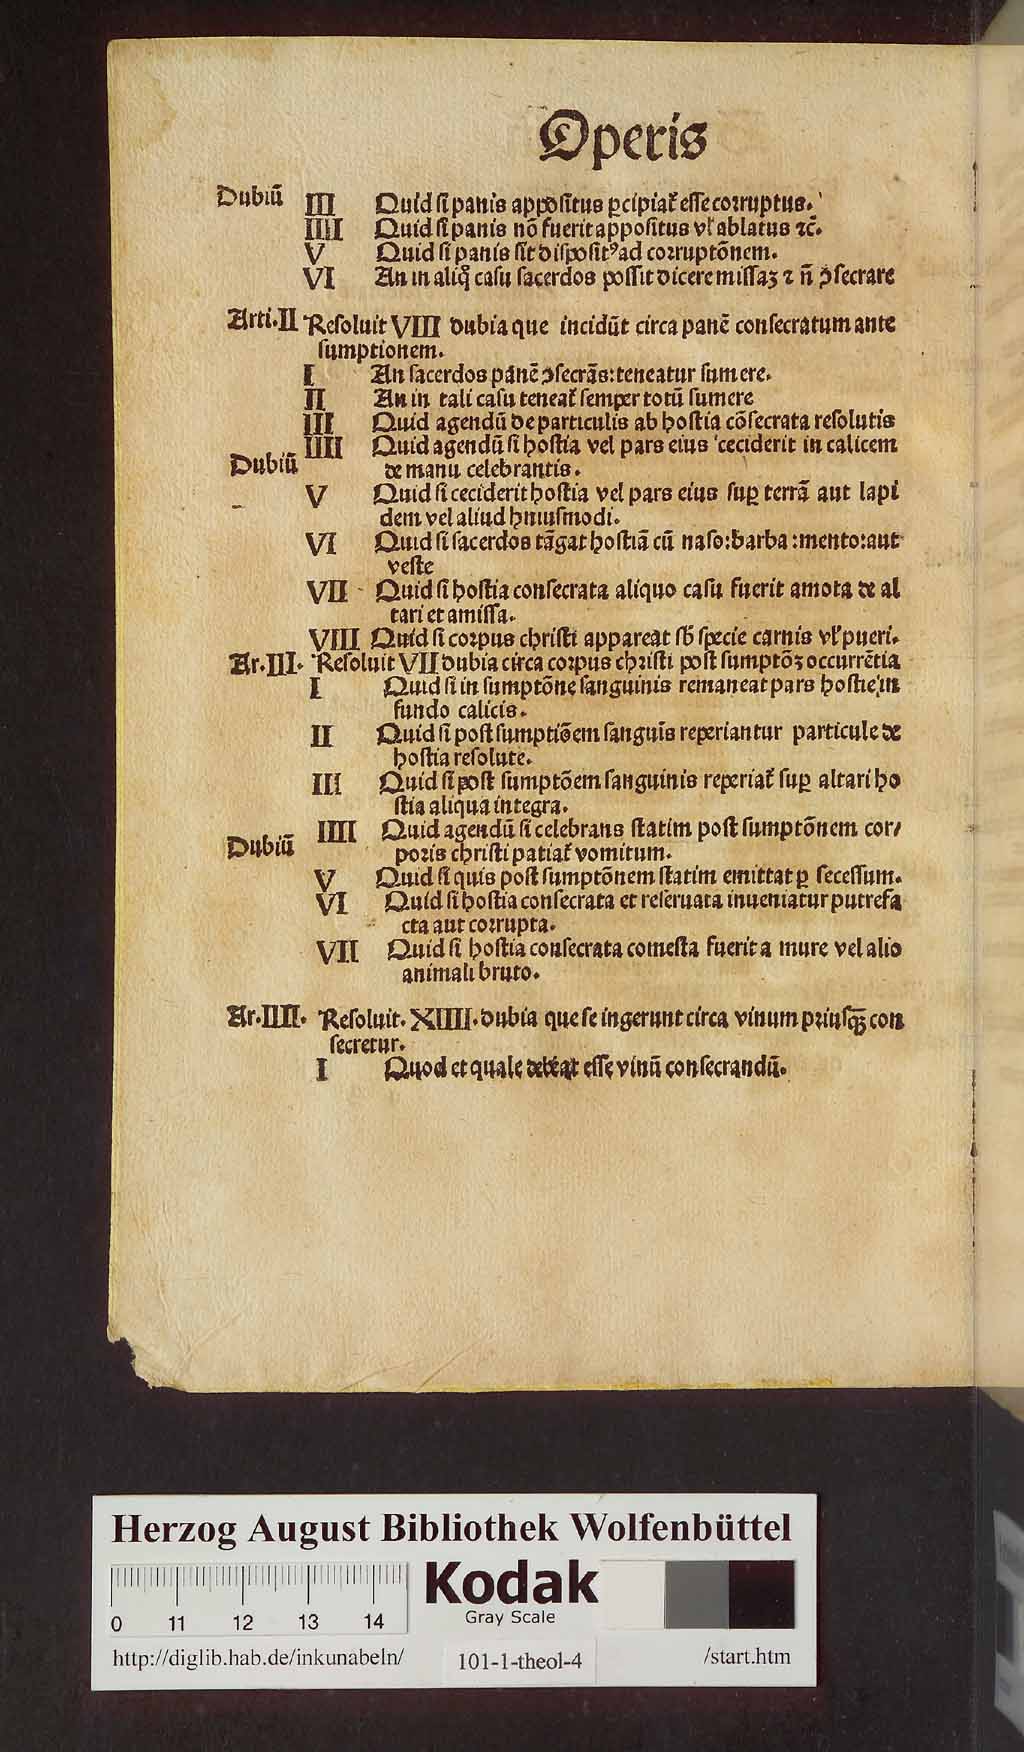 Operis
Dubiū III Quid si panis appositus ꝑcipiat᷑ esse corruptus.
IIII Quid si panis nō fuerit appositus vl' ablatus ⁊c̄.
V Quid si panis sit disposit⁹ ad corruptōnem.
VI An in aliq̊ casu sacerdos possit dicere missaꝫ ⁊ n̄ ꝯsecrare
Arti.II Resoluit VIII dubia que incidūt circa panē consecratum ante
sumptionem.
I An sacerdos panē ꝯsecrās: teneatur sumere.
II An in tali casu teneat᷑ semper totū sumere
III Quid agendū de particulis ab hostia cōsecrata resolutis
IIII Quid agendū si hostia vel pars eius ceciderit in calicem
Dubiū de manu celebrantis.
V Quid si ceciderit hostia vel pars eius suꝑ terrā aut lapi
dem vel aliud huiusmodi.
VI Quid si sacerdos tāgat hostiā cū naso: barba: mento: aut
veste
VII Quid si hostia consecrata aliquo casu fuerit amota de al
tari et amissa.
VIII Quid si corpus christi appareat sb̄ specie carnis vl' pueri.
Ar.III. Resoluit VII dubia circa corpus christi post sumptōꝫ occurrētia
I Quid si in sumptōne sanguinis remaneat pars hostie in
fundo calicis.
II Quid si post sumptiōem sanguīs reperiantur particule de
hostia resolute.
III Quid si post sumptōem sanguinis reperiat᷑ suꝑ altari ho
stia aliqua integra.
IIII Quid agendū si celebrans statim post sumptōnem cor/
Dubiū poris christi patiat᷑ vomitum.
V Quid si quis post sumptōnem statim emittat ꝑ secessum.
VI Quid si hostia consecrata et reseruata inueniatur putrefa
cta aut corrupta.
VII Quid si hostia consecrata comesta fuerit a mure vel alio
animali bruto.
Ar.IIII. Resoluit. XIIII. dubia que se ingerunt circa vinum priusqꝫ con
secretur.
I Quod et quale debeat esse vinū consecrandū.
Herzog August Bibliothek Wolfenbüttel
0 11 12 13 14
Kodak
Gray Scale
http://diglib.hab.de/inkunabeln/ 101-1-theol-4 /start.htm